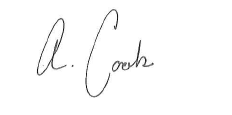 A. Cook